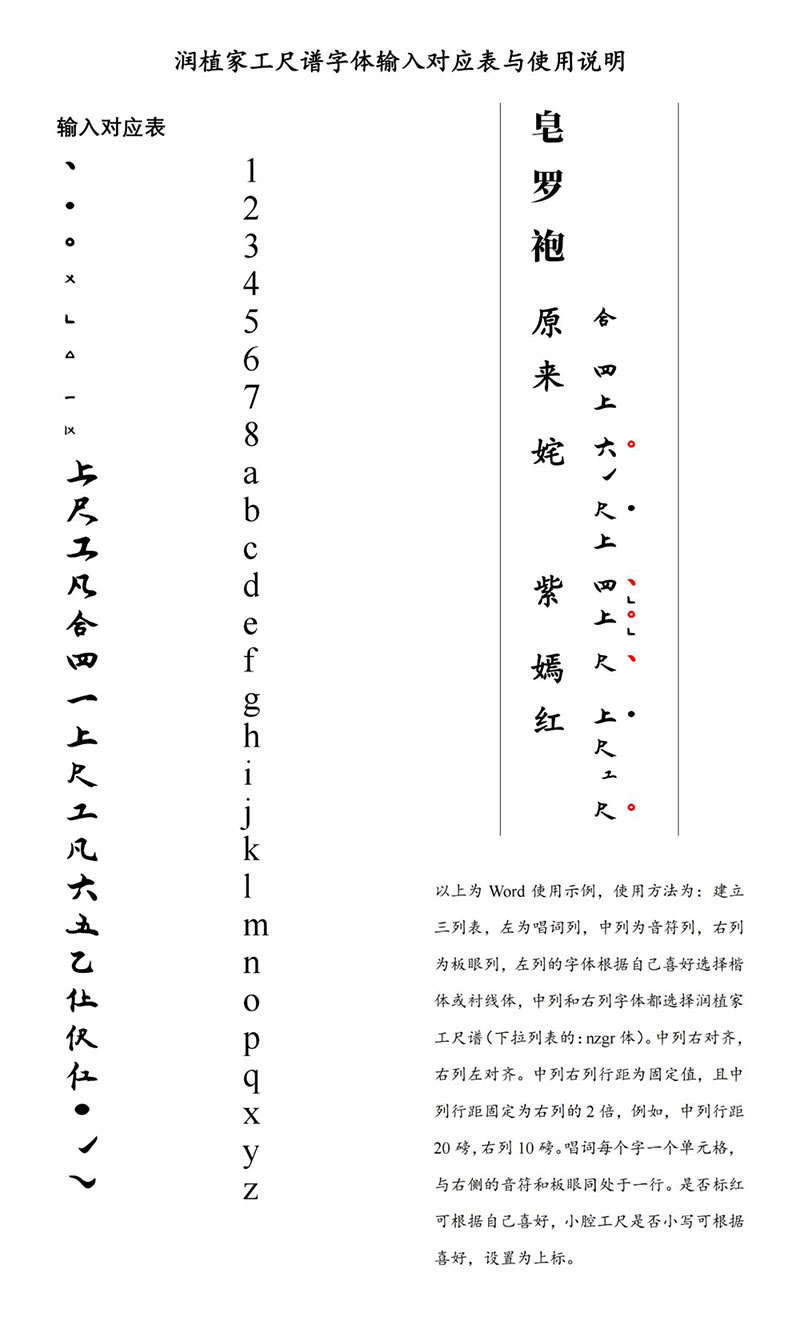 润植家工尺谱字体输入对应表与使用说明
输入对应表
丶 1
• 2
○ 3
× 4
∟ 5
△ 6
一 7
|× 8
上 a
尺 b
工 c
凡 d
合 e
四 f
一 g
上 h
尺 i
工 j
凡 k
六 l
五 m
乙 n
仩 o
伬 p
仜 q
• x
㇒ y
～ z
皂
罗
袍
原 合
来 四
上
姹 六 ○
㇒
尺 •
上
紫 四 丶
∟
上 ○
∟
嫣 尺 丶
红 上 •
尺
工
尺 ○
以上为 Word 使用示例，使用方法为：建立
三列表，左为唱词列，中列为音符列，右列
为板眼列，左列的字体根据自己喜好选择楷
体或衬线体，中列和右列字体都选择润植家
工尺谱（下拉列表的：nzgr 体）。中列右对齐，
右列左对齐。中列右列行距为固定值，且中
列行距固定为右列的 2 倍，例如，中列行距
20 磅，右列 10 磅。唱词每个字一个单元格，
与右侧的音符和板眼同处于一行。是否标红
可根据自己喜好，小腔工尺是否小写可根据
喜好，设置为上标。